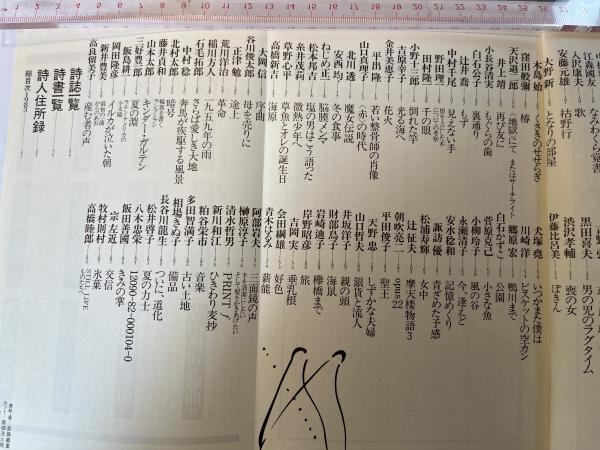 江森國友 なみわくら覚書
入沢康夫 歌
安藤元雄 枯野行
大野 新 となりの部屋
木島 始 くさきのせせらぎ
天沢退二郎 〈地獄〉にて またはサーチライト
窪田般彌 椿
井上 靖 再び友に
小長谷清実 もぐらの歯
白石公子 裏通り
辻井 喬 もず
中村千尾 見えない手
野田理一
田村隆一 千の眼
小野十三郎 倒れた竿
吉原幸子 光る海へ
金井美恵子 花火
平出 隆 若い整骨師の肖像
山口眞理子 〈赤〉の時代
北川 透 魔女伝説
安西 均 冬の食事
ねじめ正一 脳膜メンマ
松本邦吉 塩の男はこう語った
糸井茂莉 微熱少年へ
草野心平 草魚とオレの誕生日
高橋新吉 海原
大岡 信 序曲
谷川俊太郎 母を売りに
正津 勉 途上
荒川洋治 革命
稲川方人 一九五九年の雨
石毛拓郎 さらば愛しき大地
中村 稔 奔馬が疾駆する風景
北村太郎 暗号
藤井貞和
山本太郎
三好豊一郎 キンダー・ガルテン
飯島耕一 夏の淵
岡田隆彦
新井豊美 イルカが泣いた朝
高良留美子 産む者の声
黒田喜夫 男の児のラグタイム
渋沢孝輔 喪の女
伊藤比呂美 ぽきん
犬塚 堯 いつかまた僕は
川崎 洋 ビスケットの空カン
郷原 宏 鴨川まで
白石かずこ 公園
菅原克己 小さな魚
小柳玲子 風の谷
永瀬清子 今、逢えと
安水稔和 記憶めくり
諏訪 優 青ざめた予感
松浦寿輝 女中
朝吹亮二 opus 22
辻 征夫 摩天楼物語3
平田俊子 聖王
天野 忠 しずかな夫婦
山口哲夫 銀貨と流人
井坂洋子 親の頭
財部鳥子 海鼠
岩崎迪子 欅橋まで
岸野昭彦 旅
吉岡 実 垂乳根
会田綱雄 好色
青木はるみ 薪能
阿部岩夫 三面鏡の声
榊原淳子
清水哲男 PRINT/
新川和江 ひきわり麦抄
粕谷栄市 音楽
多田智満子 古い土地
相場きぬ子 備品
長谷川龍生 ついに、道化
松井啓子 夏の力士
八木忠栄 12090-82-000104-0
飯田善國 きみの掌
宗 左近 交信
牧村則村 氷菓
高橋睦郎 STILL LIFE
詩誌一覧
詩書一覧
詩人住所録
総目次―1983